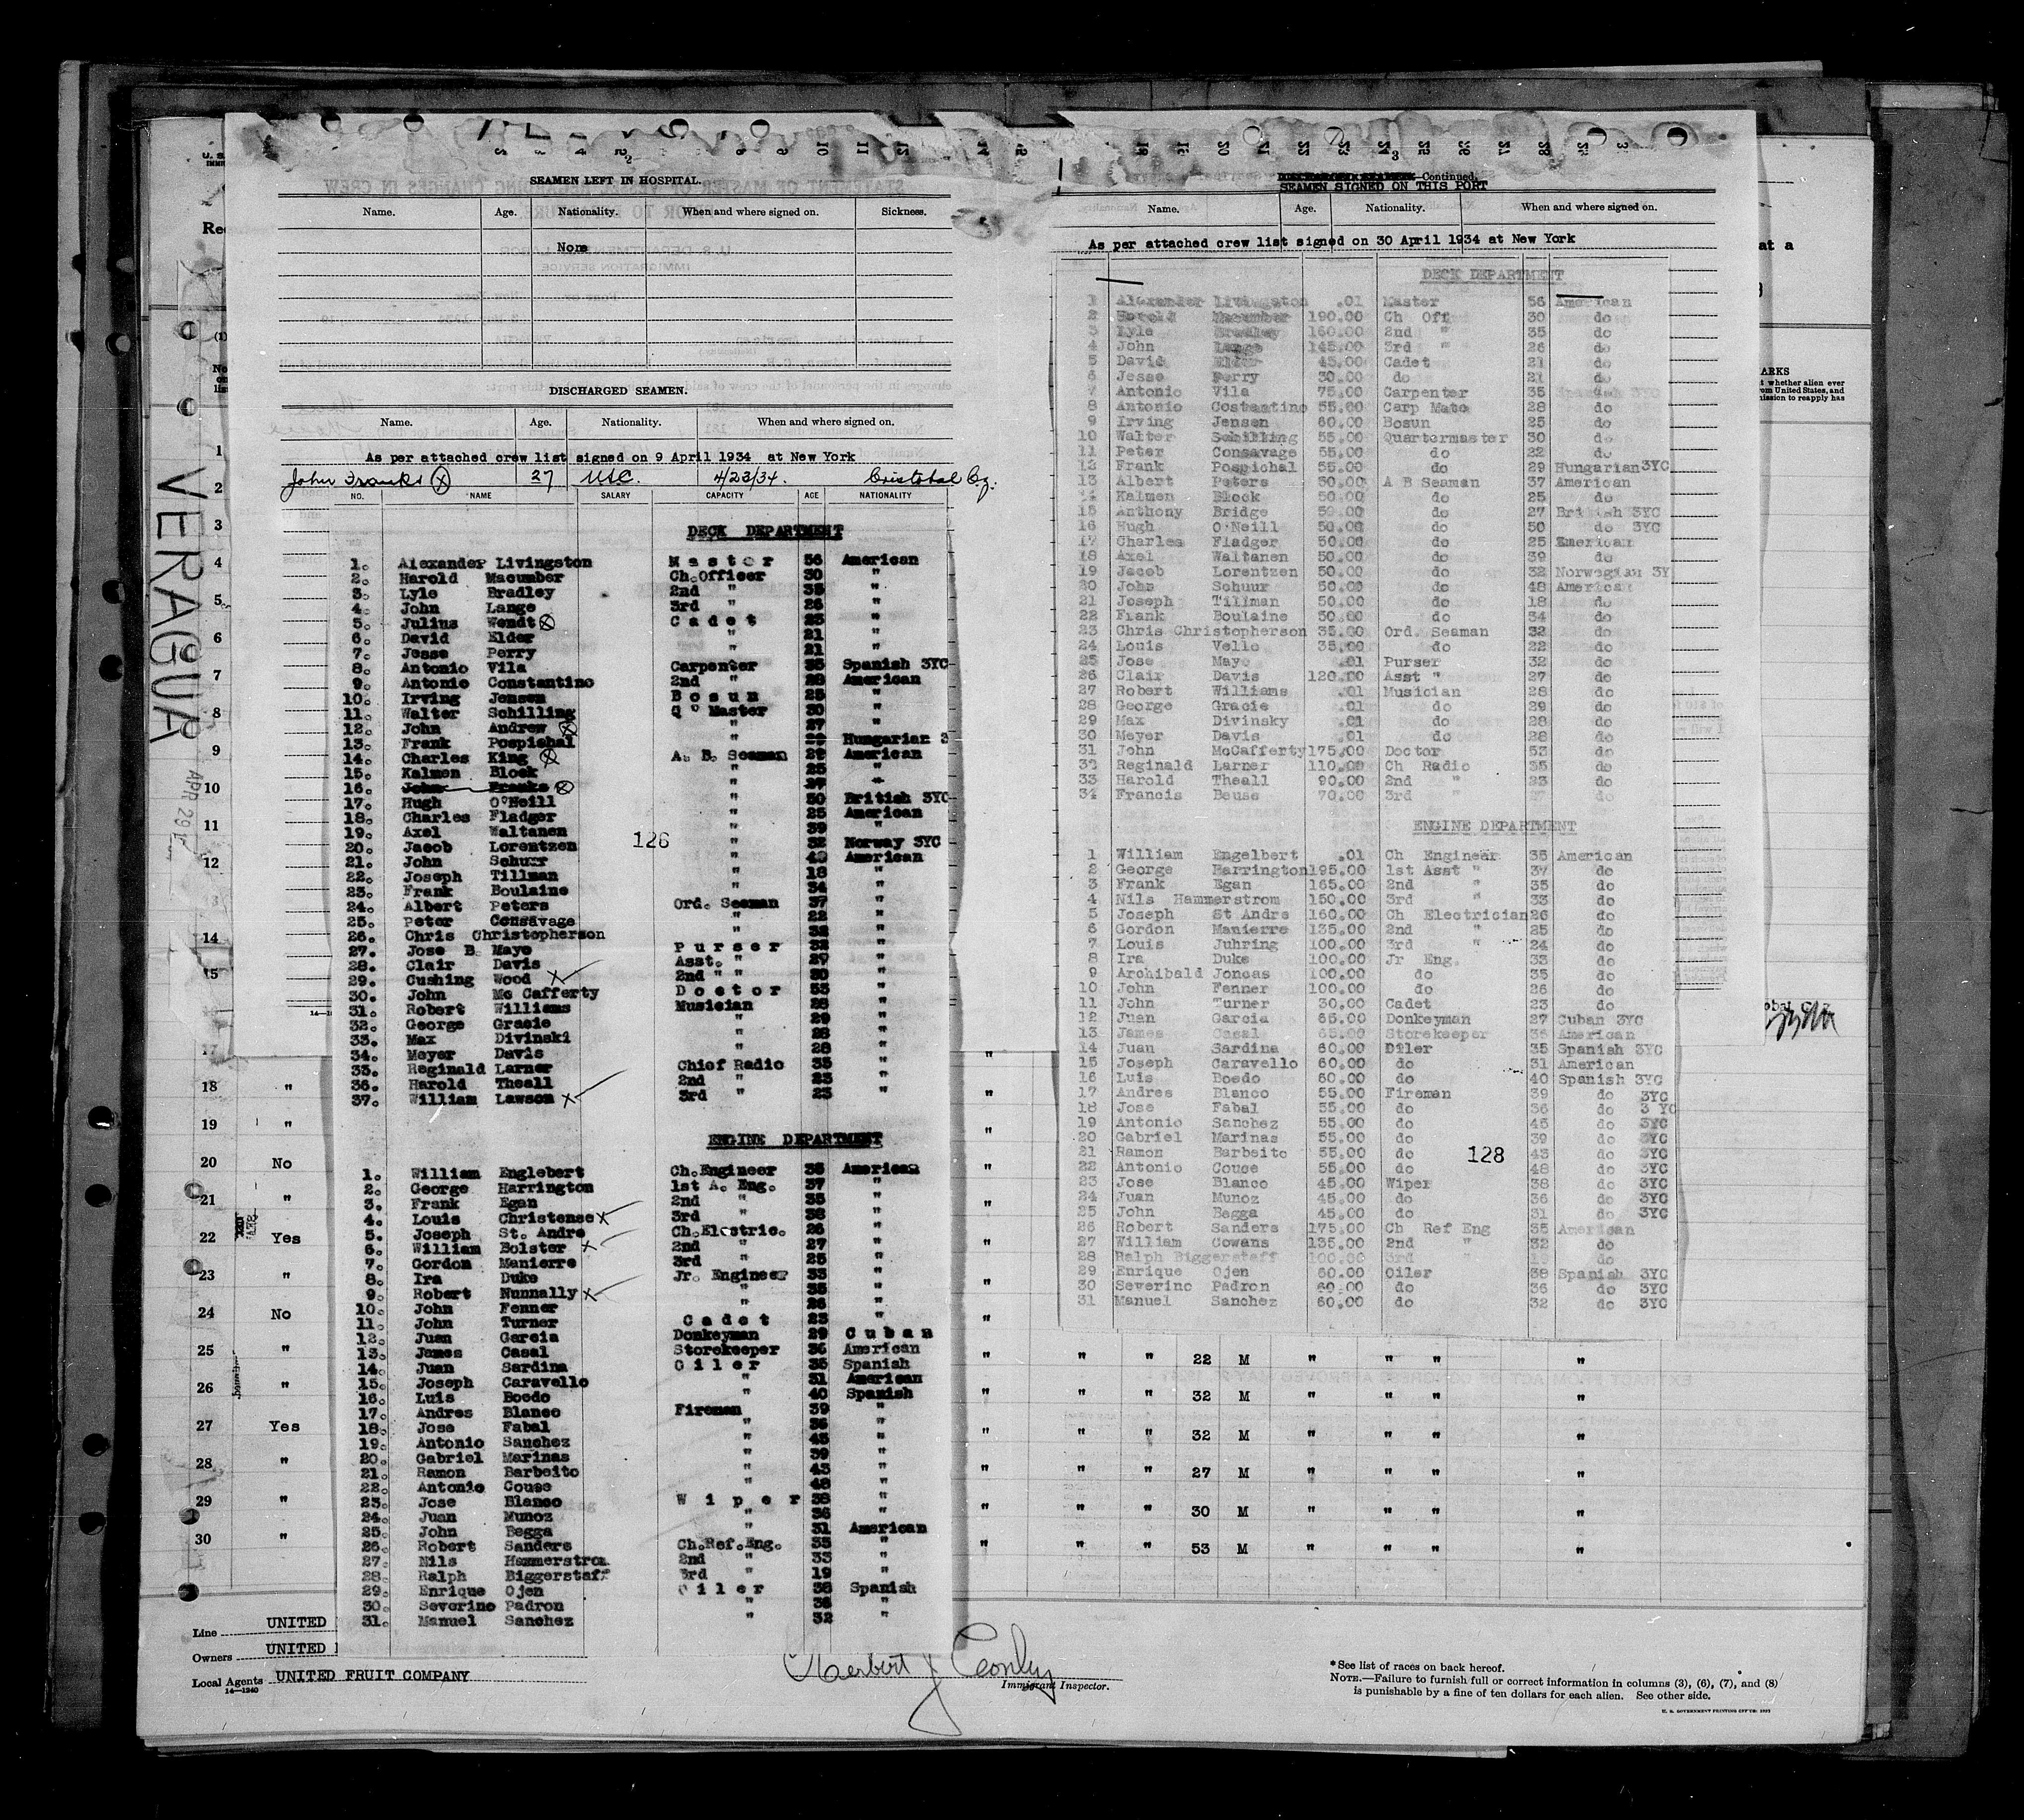 SEAMEN LEFT IN HOSPITAL.
Name. Age. Nationality. When and where signed on. Sickness.
None
DISCHARGED SEAMEN.
Name. Age. Nationality. When and where signed on.
As per attached crew list signed on 9 April 1934 at New York
John Franks 27 USC. 4/23/34. Cristobal C.z.
NO. NAME SALARY CAPACITY AGE NATIONALITY
DECK DEPARTMENT
1. Alexander Livingston Master 56 American
2. Harold Macumber Ch.Officer 30 "
3. Lyle Bradley 2nd " 35 "
4. John Lange 3rd " 26 "
5. Julius Wendt Cadet 23 "
6. David Elder " 21 "
7. Jesse Perry " 21 "
8. Antonio Vila Carpenter 35 Spanish 3YC
9. Antonio Constantino 2nd " 28 American
10. Irving Jensen Bosun 25 "
11. Walter Schilling Q° Master 30 "
12. John Andrew " 27 "
13. Frank Pospichal " 29 Hungarian 3
14. Charles King A. B. Seaman 29 American
15. Kalmen Block " 25 "
16. John Franks " 27 "
17. Hugh O'Neill " 50 British 3YC
18. Charles Fladger " 25 American
19. Axel Waltanen " 39 "
20. Jacob Lorentzen 126 " 32 Norway 3YC
21. John Schuur " 48 American
22. Joseph Tillman " 18 "
23. Frank Boulaine " 34 "
24. Albert Peters Ord. Seaman 37 "
25. Peter Consavage " 22 "
26. Chris Christopherson " 32 "
27. Jose B Mayo Purser 32 "
28. Clair Davis Asst. " 27 "
29. Cushing Wood X 2nd " " 30 "
30. John Mc Cafferty Doctor 53 "
31. Robert Williams Musician 28 "
32. George Gracie " 29 "
33. Max Divinski " 28 "
34. Meyer Davis " 28 "
35. Reginald Larner Chief Radio 35 "
36. Harold Theall 2nd " 23 "
37. William Lawson X 3rd " 23 "
ENGINE DEPARTMENT
1. William Englebert Ch.Engineer 35 American
2. George Harrington 1st A. Eng. 37 "
3. Frank Egan 2nd " 35 "
4. Louis Christense X 3rd " 38 "
5. Joseph St. Andre Ch.Electric. 26 "
6. William Bolster X 2nd " 27 "
7. Gordon Manierre 3rd " 25 "
8. Ira Duke Jr. Engineer 33 "
9. Robert Nunnally X " 35 "
10. John Fenner " 26 "
11. John Turner Cadet 23 "
12. Juan Garcia Donkeyman 29 Cuban
13. James Casal Storekeeper 36 American
14. Juan Sardina Oiler 35 Spanish
15. Joseph Caravello " 31 American
16. Luis Boedo " 40 Spanish
17. Andres Blanco Fireman 39 "
18. Jose Fabal " 36 "
19. Antonio Sanchez " 45 "
20. Gabriel Marinas " 39 "
21. Ramon Barbeito " 43 "
22. Antonio Couse " 48 "
23. Jose Blanco Wiper 38 "
24. Juan Munoz " 36 "
25. John Begga " 31 American
26. Robert Sanders Ch.Ref.Eng. 35 "
27. Nils Hammerstrom 2nd " 33 "
28. Ralph Biggerstaff 3rd " 19 "
29. Enrique Ojen Oiler 38 Spanish
30. Severino Padron " 36 "
31. Manuel Sanchez " 32 "
Continued.
SEAMEN SIGNED ON THIS PORT
Name. Age. Nationality. When and where signed on.
As per attached crew list signed on 30 April 1934 at New York
DECK DEPARTMENT
1 Alexander Livingston .01 Master 56 American
2 Harold Macumber 190.00 Ch Off 30 do
3 Lyle Bradley 160.00 2nd " 35 do
4 John Lange 145.00 3rd " 26 do
5 David Elder 45.00 Cadet 21 do
6 Jesse Perry 30.00 do 21 do
7 Antonio Vila 75.00 Carpenter 35 Spanish 3YC
8 Antonio Costantino 55.00 Carp Mate 28 do
9 Irving Jensen 60.00 Bosun 25 do
10 Walter Schilling 55.00 Quartermaster 30 do
11 Peter Consavage 55.00 do 22 do
12 Frank Pospichal 55.00 do 29 Hungarian 3YC
13 Albert Peters 50.00 A B Seaman 37 American
14 Kalmen Block 50.00 do 25 do
15 Anthony Bridge 50.00 do 27 British 3YC
16 Hugh O'Neill 50.00 do 50 do 3YC
17 Charles Fladger 50.00 do 25 American
18 Axel Waltanen 50.00 do 39 do
19 Jacob Lorentzen 50.00 do 32 Norwegian 3Y
20 John Schuur 50.00 do 48 American
21 Joseph Tillman 50.00 do 18 do
22 Frank Boulaine 50.00 do 34 do
23 Chris Christopherson 35.00 Ord. Seaman 32 do
24 Louis Vello 35.00 do 22 do
25 Jose Mayo .01 Purser 32 do
26 Clair Davis 120.00 Asst " 27 do
27 Robert Williams .01 Musician 28 do
28 George Gracie .01 do 29 do
29 Max Divinsky .01 do 28 do
30 Meyer Davis .01 do 28 do
31 John McCafferty 175.00 Doctor 53 do
32 Reginald Larner 110.00 Ch Radio 35 do
33 Harold Theall 90.00 2nd " 23 do
34 Francis Beuse 70.00 3rd " 27 do
ENGINE DEPARTMENT
1 William Engelbert .01 Ch Engineer 35 American
2 George Harrington 195.00 1st Asst " 37 do
3 Frank Egan 165.00 2nd " 35 do
4 Nils Hammerstrom 150.00 3rd " 33 do
5 Joseph St Andre 160.00 Ch Electrician 26 do
6 Gordon Manierre 135.00 2nd " 25 do
7 Louis Juhring 100.00 3rd " 24 do
8 Ira Duke 100.00 Jr Eng. 33 do
9 Archibald Joncas 100.00 do 35 do
10 John Fenner 100.00 do 26 do
11 John Turner 30.00 Cadet 23 do
12 Juan Garcia 65.00 Donkeyman 27 Cuban 3YC
13 James Casal 65.00 Storekeeper 36 American
14 Juan Sardina 60.00 Oiler 35 Spanish 3YC
15 Joseph Caravello 60.00 do 31 American
16 Luis Boedo 60.00 do 40 Spanish 3YC
17 Andres Blanco 55.00 Fireman 39 do 3YC
18 Jose Fabal 55.00 do 36 do 3 YC
19 Antonio Sanchez 55.00 do 45 do 3YC
20 Gabriel Marinas 55.00 do 39 do 3YC
21 Ramon Barbeito 55.00 do 128 43 do 3YC
22 Antonio Couce 55.00 do 48 do 3YC
23 Jose Blanco 45.00 Wiper 38 do 3YC
24 Juan Munoz 45.00 do 36 do 3YC
25 John Begga 45.00 do 31 do 3YC
26 Robert Sanders 175.00 Ch Ref Eng 35 American
27 William Cowans 135.00 2nd " 32 do
28 Ralph Biggerstaff 100.00 3rd " 19 do
29 Enrique Ojen 60.00 Oiler 38 Spanish 3YC
30 Severino Padron 60.00 do 36 do 3YC
31 Manuel Sanchez 60.00 do 32 do 3YC
VERAGUA
APR 29
1
2
3
4
5
6
7
8
9
10
11
12
13
14
15
17
18 "
19 "
20 No
21 "
22 Yes
23 "
24 No
25 "
26 "
27 Yes
28 "
29 "
30 "
" " " 22 M " " " "
" " " 32 M " " " "
" " " 32 M " " " "
" " " 27 M " " " "
" " " 30 M " " " "
" " " 53 M " " " "
Line UNITED
Owners UNITED
Local Agents UNITED FRUIT COMPANY
14—1240
Herbert J Conley
Immigrant Inspector.
*See list of races on back hereof.
NOTE.—Failure to furnish full or correct information in columns (3), (6), (7), and (8)
is punishable by a fine of ten dollars for each alien. See other side.
U. S. GOVERNMENT PRINTING OFFICE: 1931